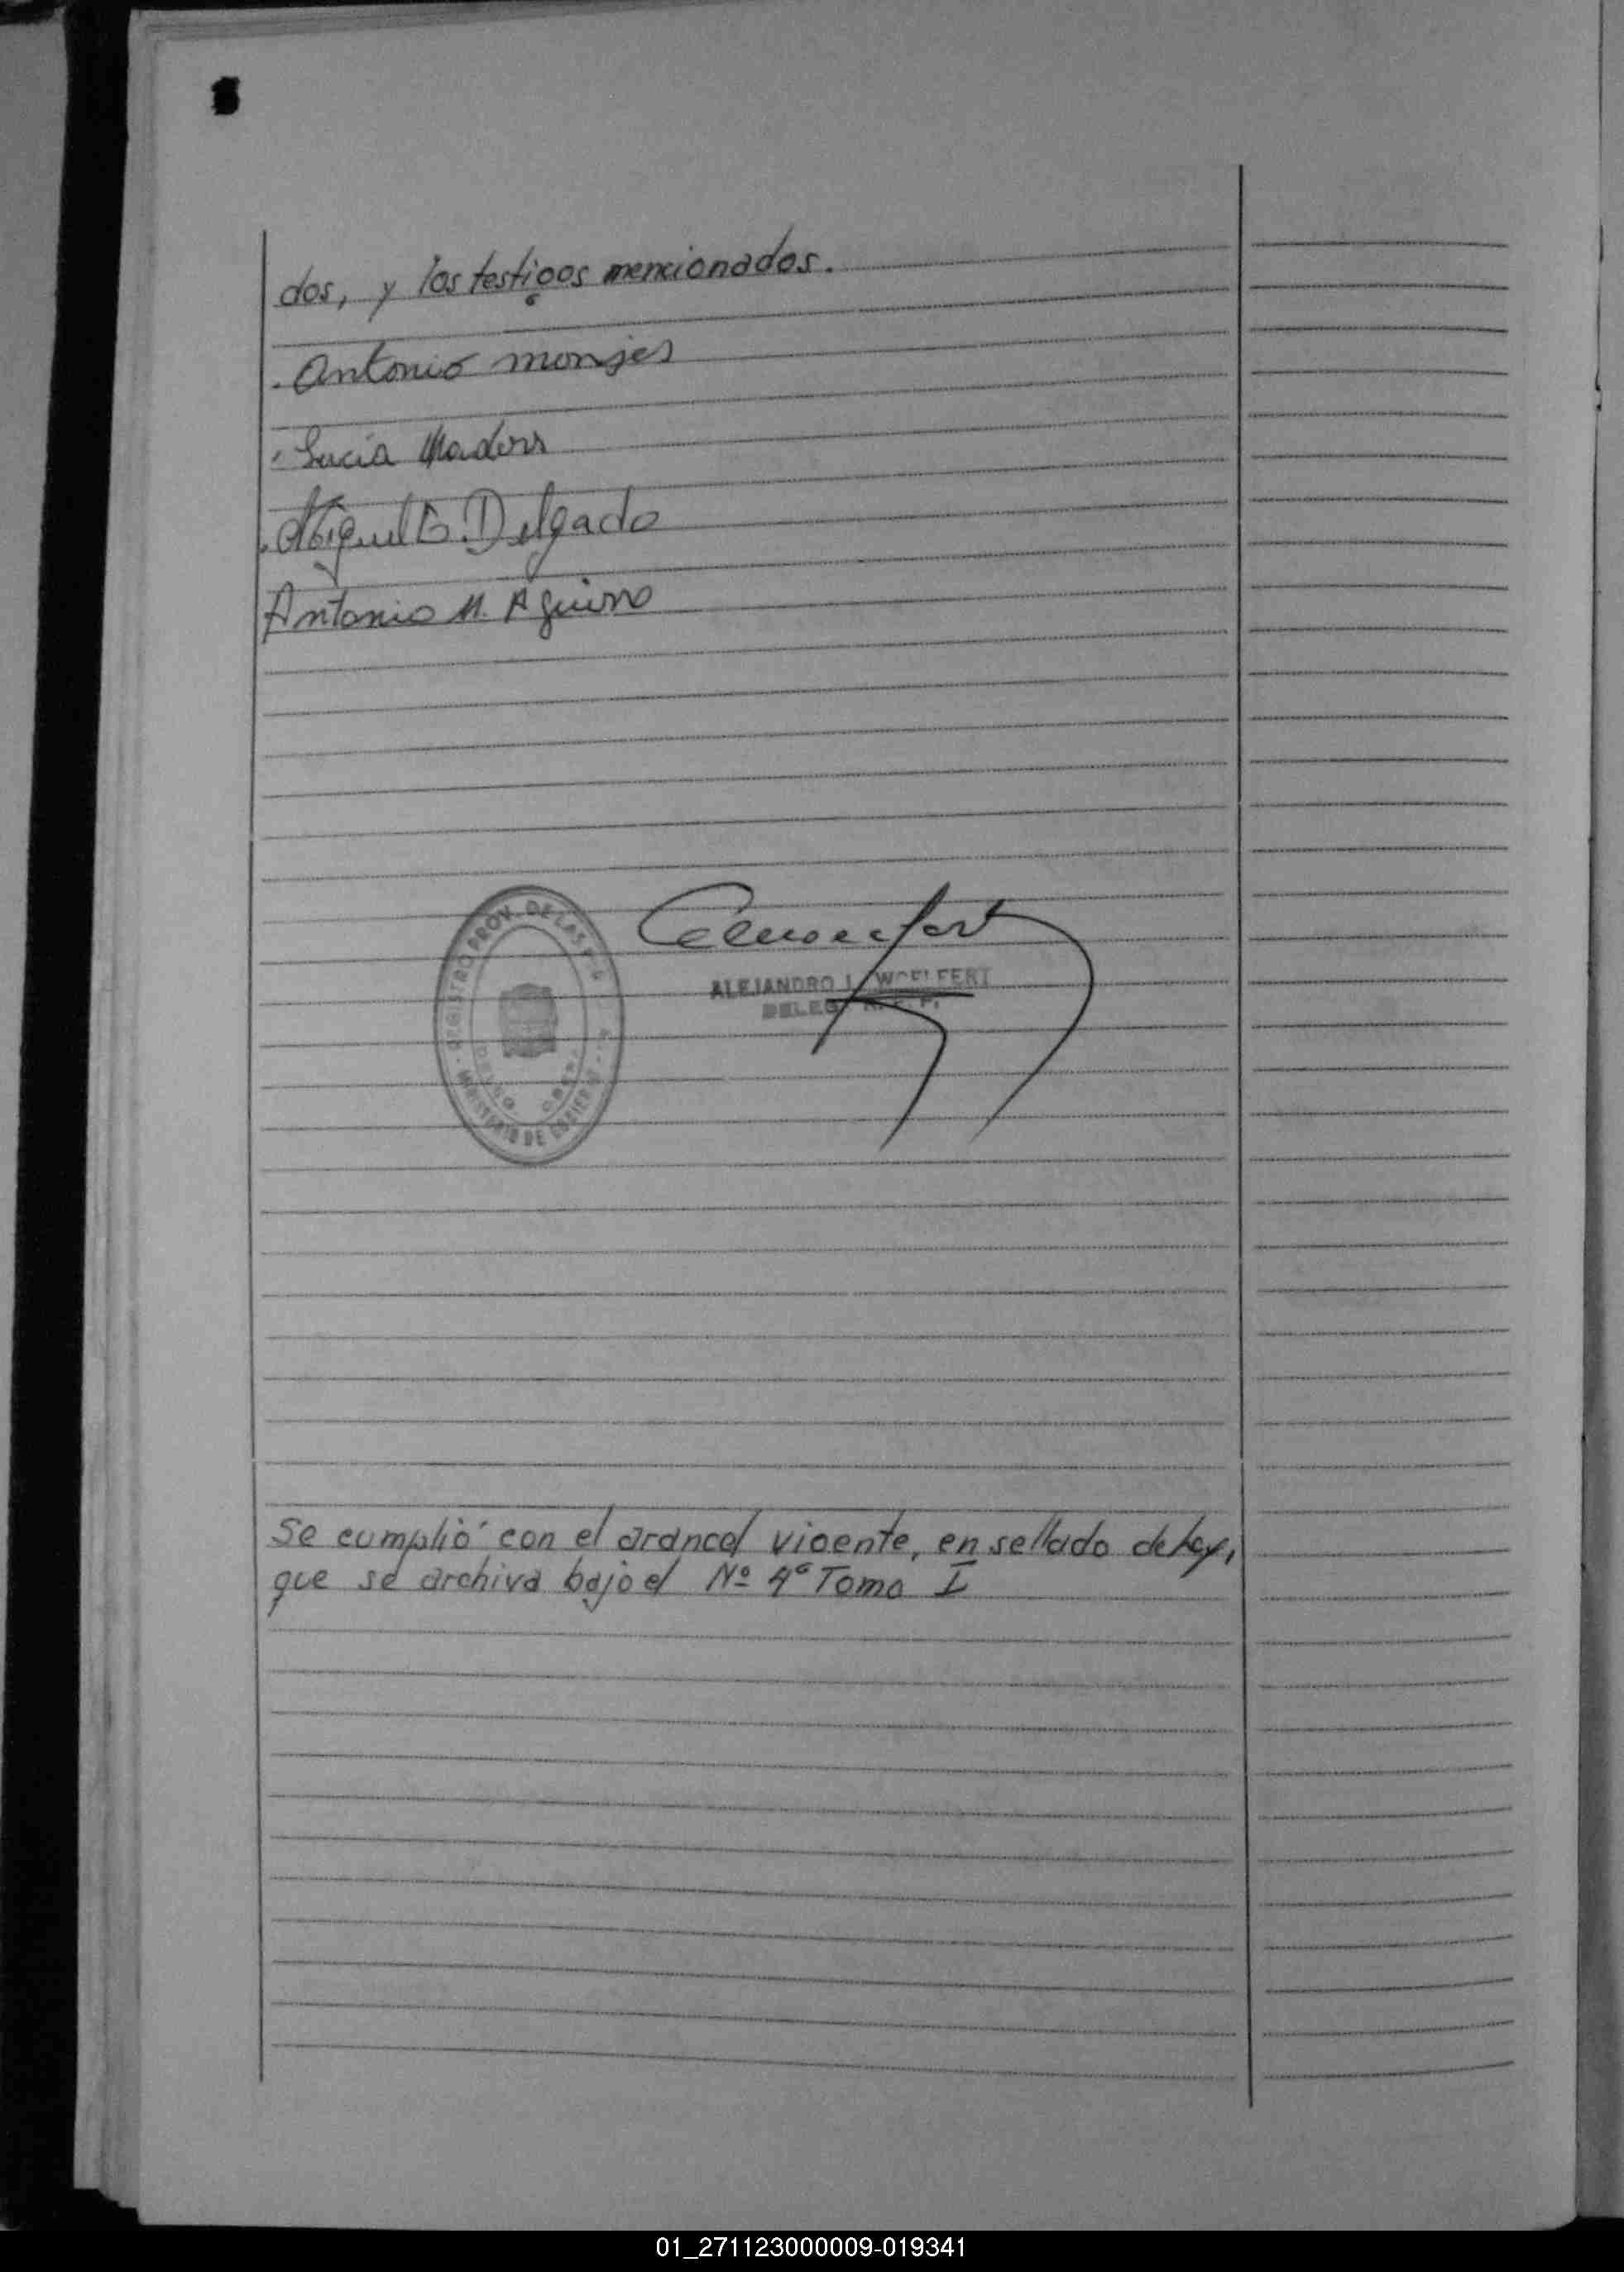 dos, y los testigos mencionados.
Antonio monjes
Lucia
Miguel E. Delgado
Antonio M. Aguirre
REGISTRO PROV. DE LAS
MINISTERIO DE GOBIERNO
ALEJANDRO L. WOELFERT
DELEG. R. P.
Se cumplió con el arancel vigente, en sellado de Ley,
que se archiva bajo el Nº 4º Tomo I
01_271123000009-019341